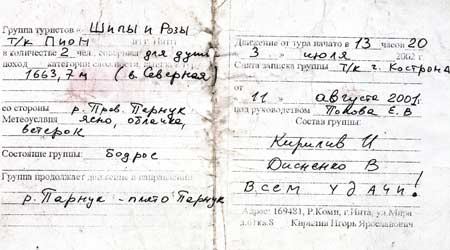 Группа туристов « Шипы и Розы
Т/к Пион из г. Инта
в количестве 2 чел. совершила для души
поход категории сложности
1663,7 м (в. Северная)
со стороны р. Прав. Парнук
Метеоусловия ясно, облачка,
ветерок
Состояние группы: Бодрое
Группа продолжает движение в направлении
р. Парнук - плато Парнук
Движение от тура начато в 13 часов 20
" 3 " июля 2002 г.
Снята записка группы Т/к г. Кострома
от
" 11 " августа 2001
под руководством Попова Е. В
Состав группы:
Кирилив И
Дисненко В
Всем удачи!
Адрес: 169481, Р.Коми, г.Инта, ул.Мира
Кирилив Игорь Ярославович